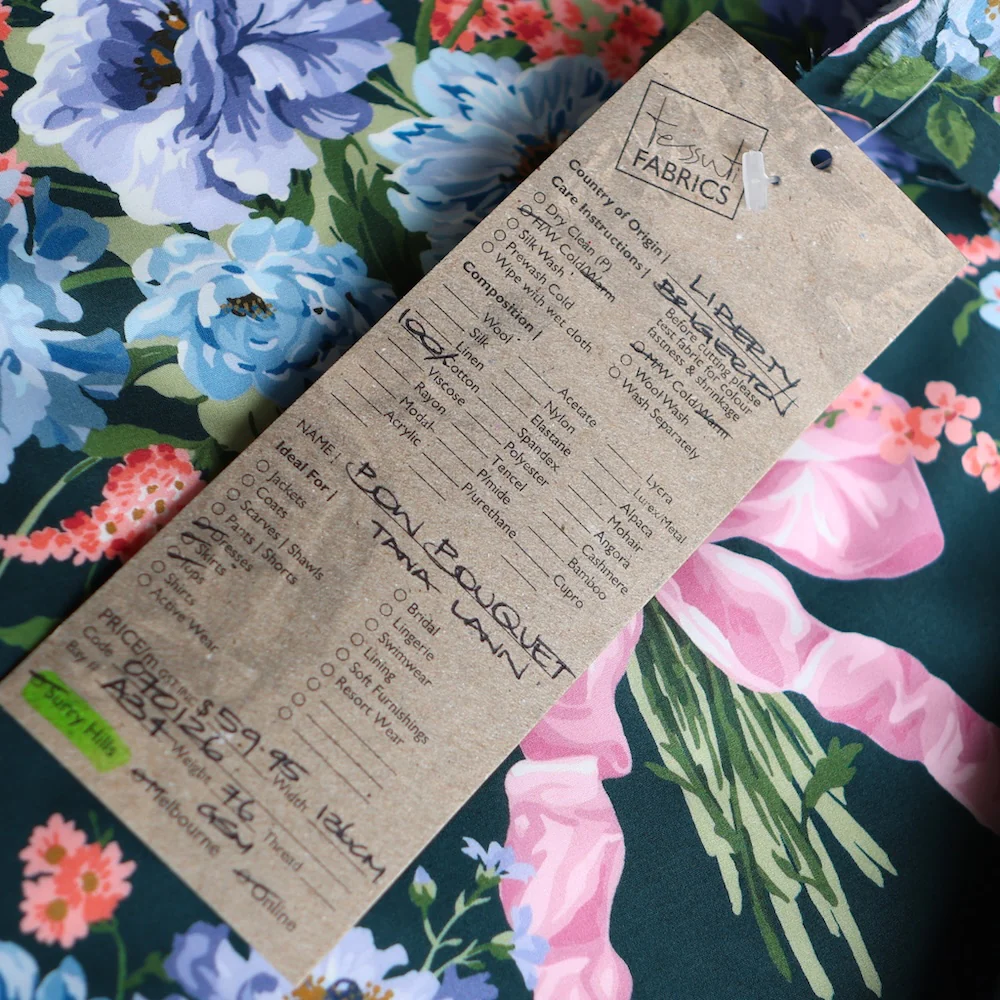 Tessuti
FABRICS
Country of Origin | LIBERTY
Care Instructions |
Dry Clean (P)
H/W Cold/Warm
Silk Wash
Prewash Cold
Wipe with wet cloth
Before cutting please
test fabric for colour
fastness & shrinkage
M/W Cold/Warm
Wool Wash
Wash Separately
Composition |
Wool
Silk
Linen
100% Cotton
Viscose
Rayon
Modal
Acrylic
Acetate
Nylon
Elastane
Spandex
Polyester
Tencel
P/mide
P/urethane
Lycra
Lurex/Metal
Alpaca
Mohair
Angora
Cashmere
Bamboo
Cupro
NAME | BON BOUQUET
TANA LAWN
Ideal For |
Jackets
Coats
Scarves | Shawls
Pants | Shorts
Dresses
Skirts
Tops
Shirts
Active Wear
Bridal
Lingerie
Swimwear
Lining
Soft Furnishings
Resort Wear
PRICE/m GST Inc $ 59.95
Code 070126 Width 136cm
Bay # A34 Weight 76 GSM Thread
Surry Hills Melbourne Online